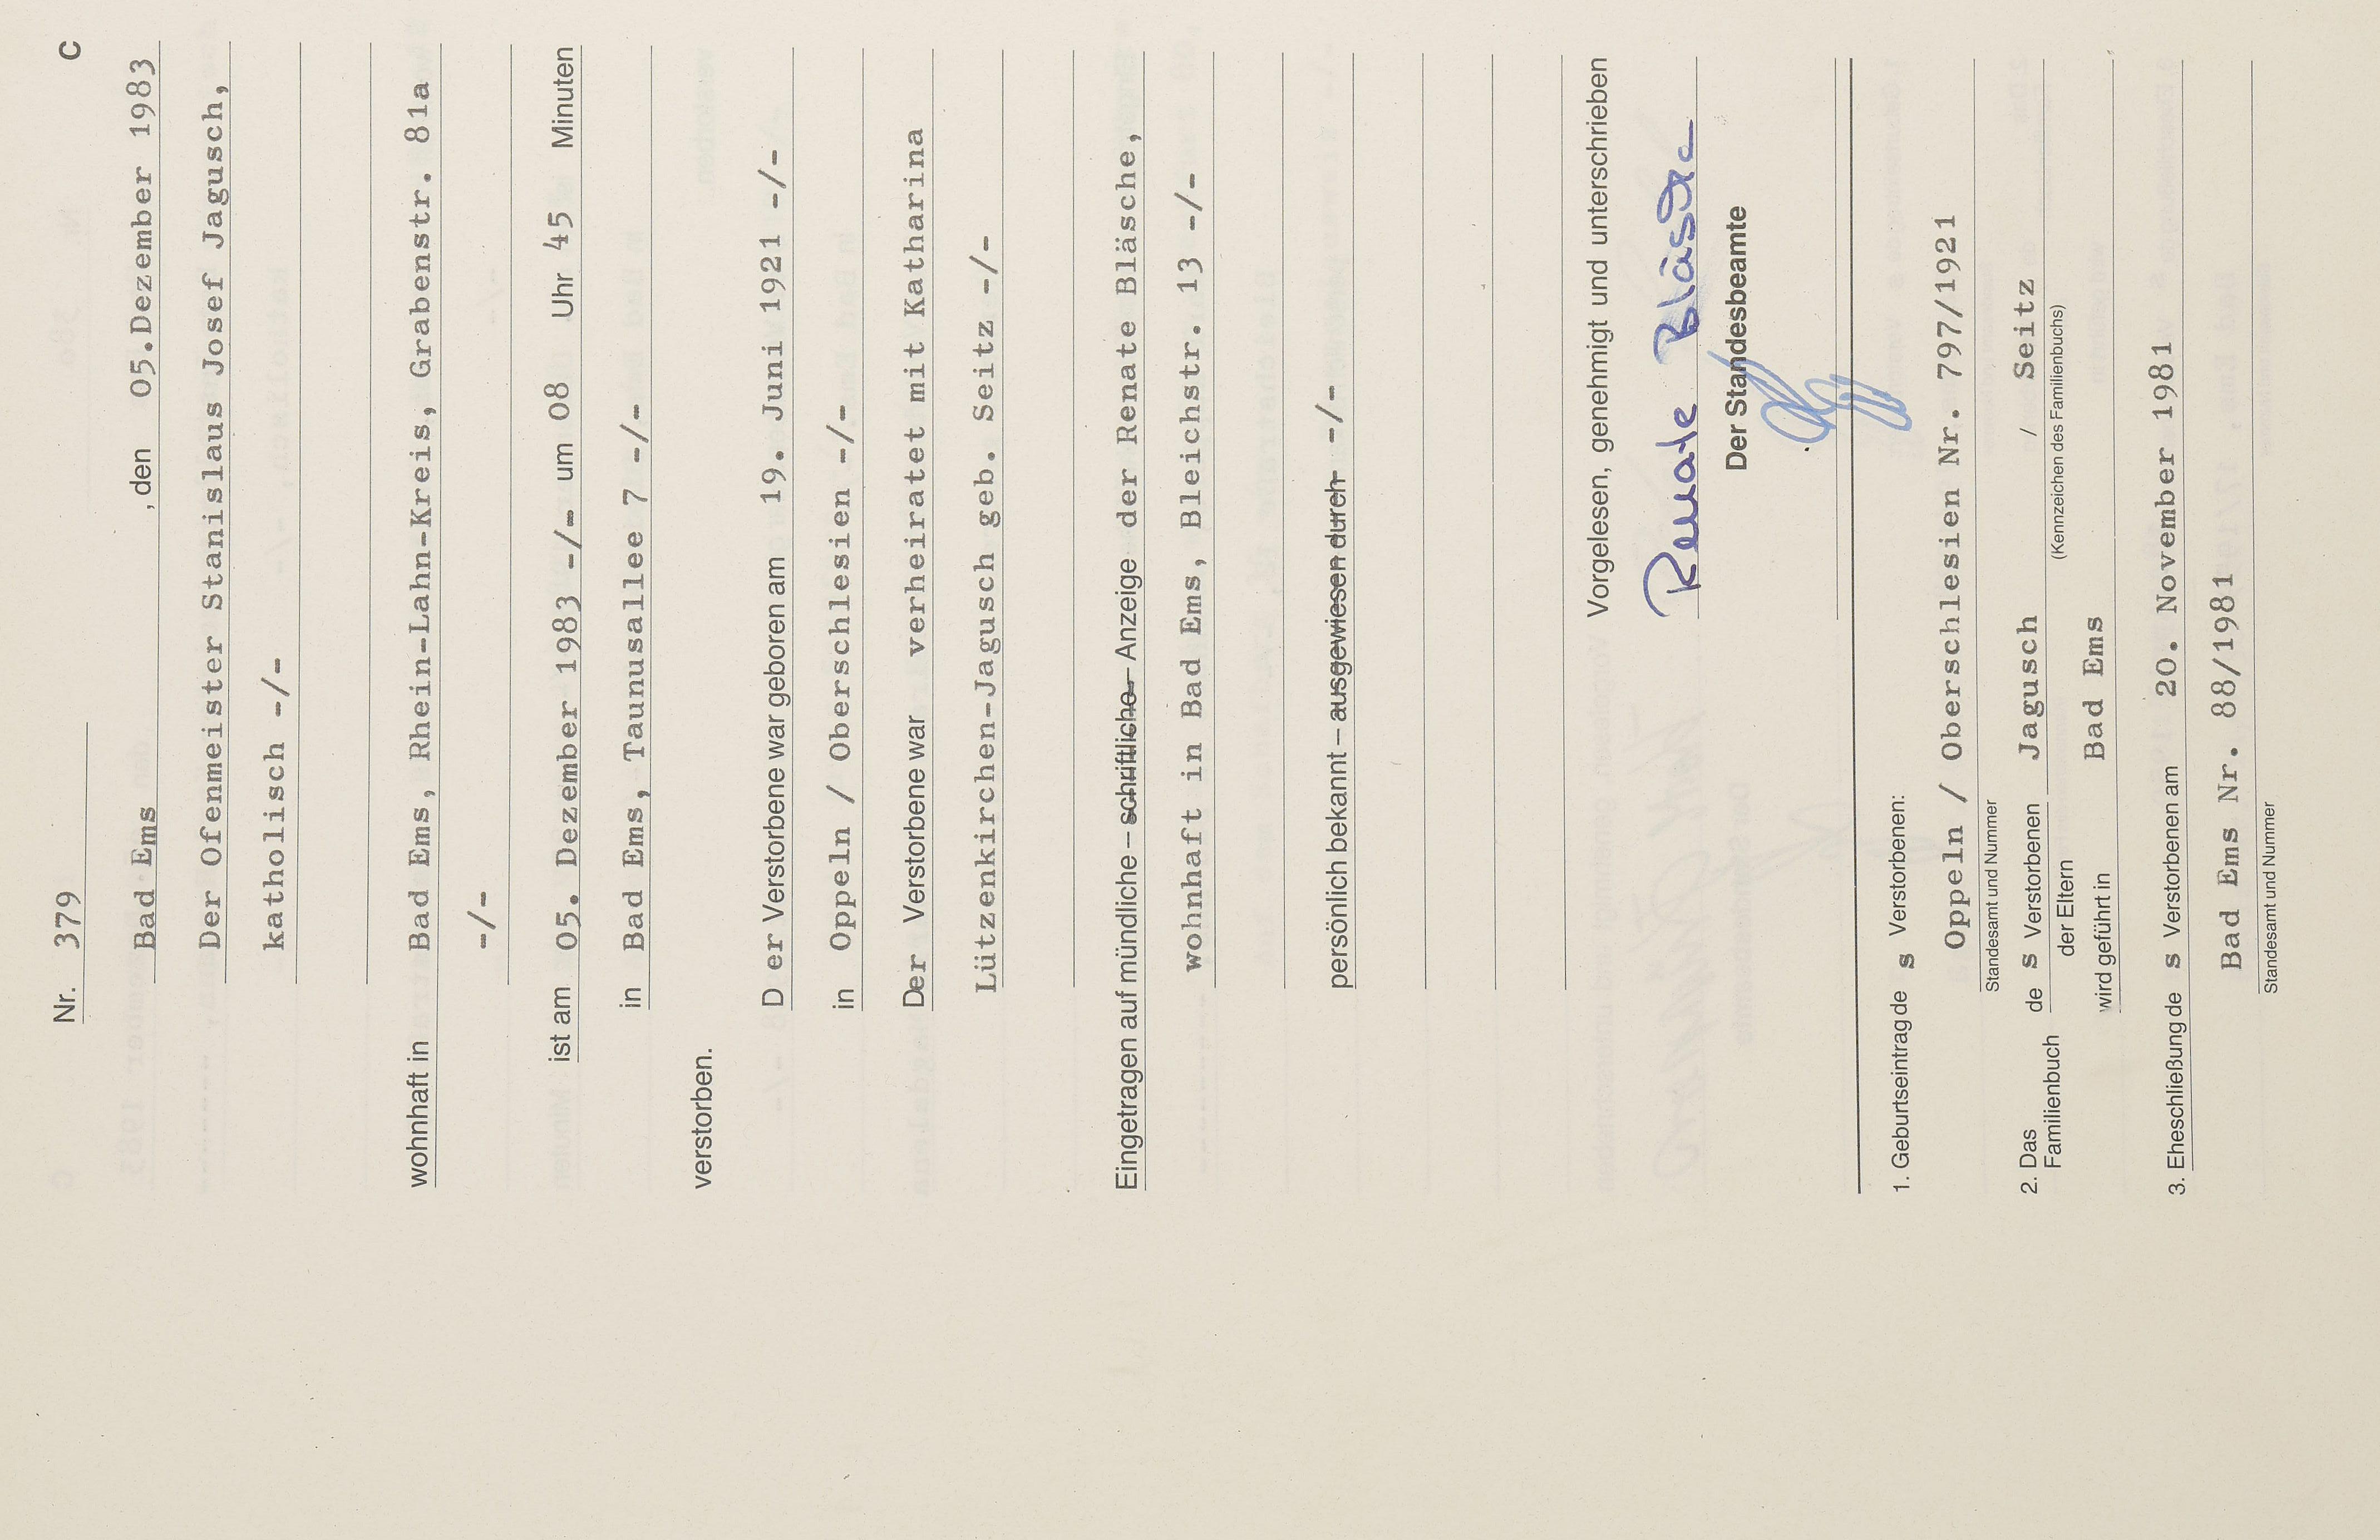 Nr. 379 C
Bad Ems , den 05.Dezember 1983
Der Ofenmeister Stanislaus Josef Jagusch,
katholisch -/-
wohnhaft in Bad Ems, Rhein-Lahn-Kreis, Grabenstr. 81a
-/-
ist am 05. Dezember 1983 -/- um 08 Uhr 45 Minuten
in Bad Ems, Taunusallee 7 -/-
verstorben.
D er Verstorbene war geboren am 19. Juni 1921 -/-
in Oppeln / Oberschlesien -/-
Der Verstorbene war verheiratet mit Katharina
Lützenkirchen-Jagusch geb. Seitz -/-
Eingetragen auf mündliche – schriftliche – Anzeige der Renate Bläsche,
wohnhaft in Bad Ems, Bleichstr. 13 -/-
persönlich bekannt – ausgewiesen durch -/-
Vorgelesen, genehmigt und unterschrieben
Renate Bläsche
Der Standesbeamte
1. Geburtseintrag de s Verstorbenen:
Oppeln / Oberschlesien Nr. 797/1921
Standesamt und Nummer
2. Das Familienbuch de s Verstorbenen Jagusch / Seitz
der Eltern (Kennzeichen des Familienbuchs)
wird geführt in Bad Ems
3. Eheschließung de s Verstorbenen am 20. November 1981
Bad Ems Nr. 88/1981
Standesamt und Nummer